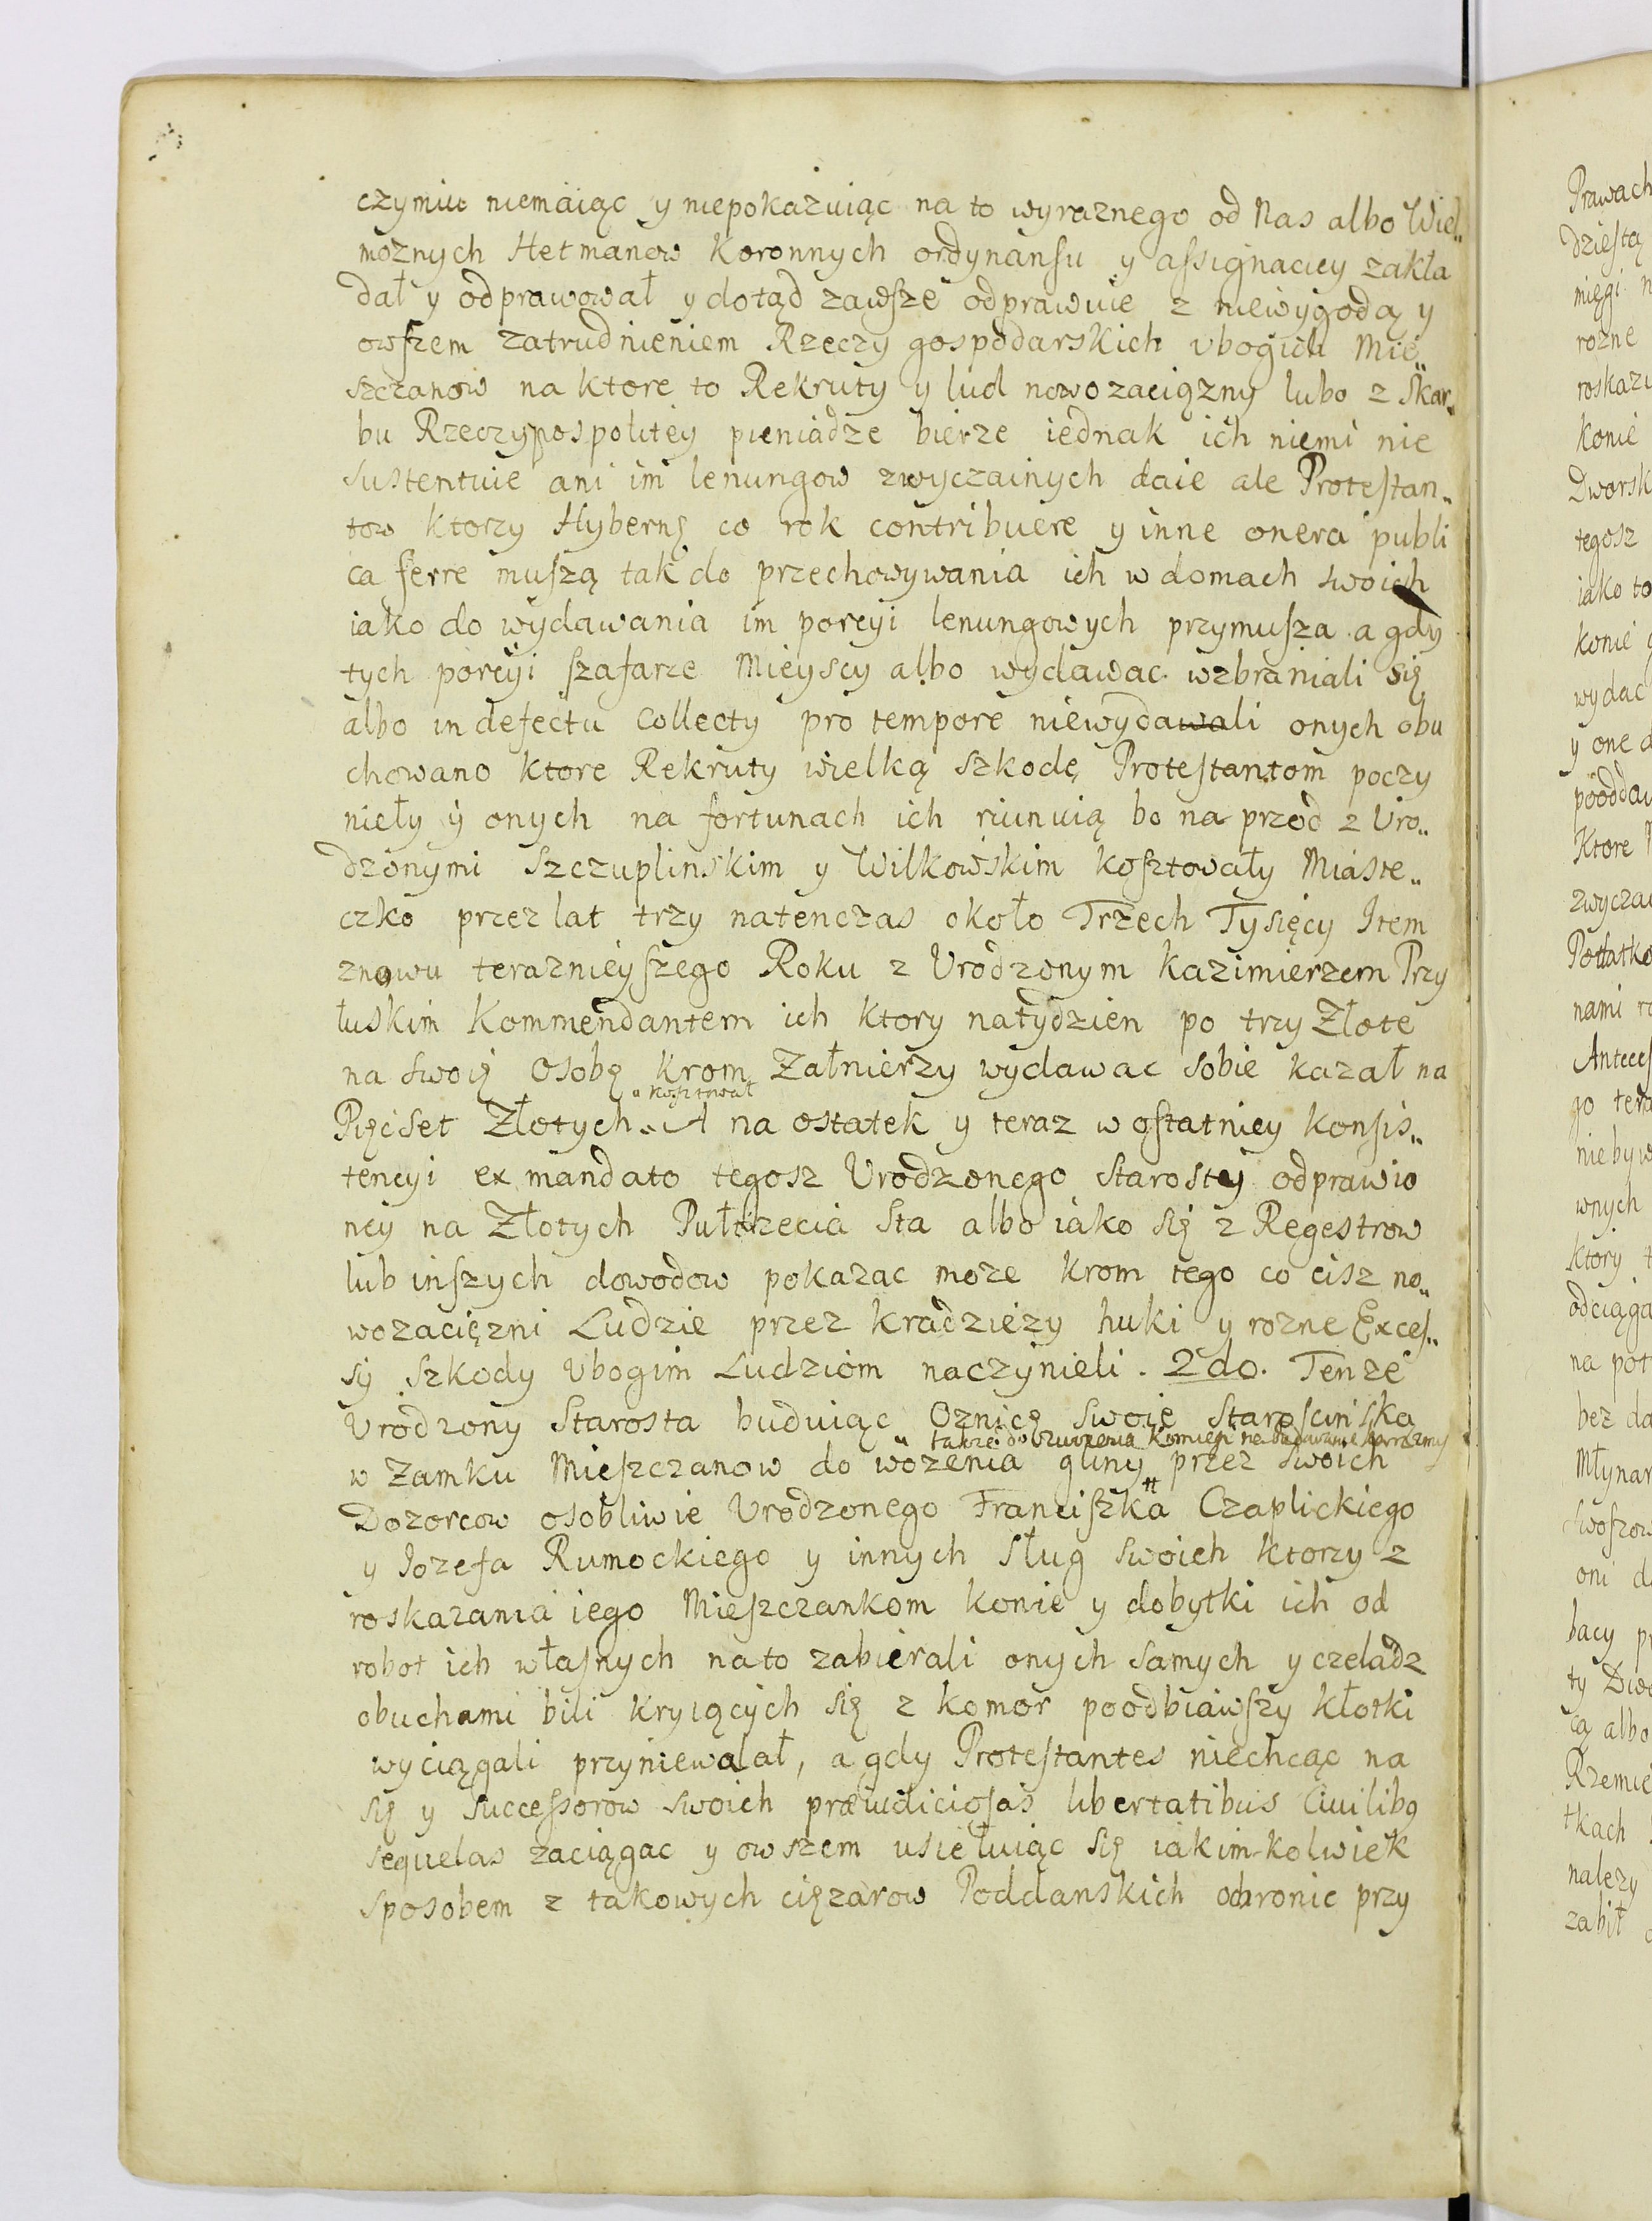 czymiu niemaiąc y niepokazuiąc na to wyraznego od Nas albo Wiel„
moznych Hetmanow Koronnych ordynansu y assignaciey zakła
dał y odprawował y dotąd zawsze odprawuie z niewygodą y
owszem zatrudnieniem Rzeczy gospodarskich vbogich Mie„
szczanow na ktore to Rekruty y lud nowozaciązny lubo z Skar„
bu Rzeczypospolitey pieniadze bierze iednak ich niemi nie
sustentuie ani im lenungow zwyczainych daie ale Protestan„
tow ktorzy Hybernę co rok contribuere y inne onera publi
ca ferre muszą tak do przechowywania ich w domach swoich
iako do wydawania im porcyi lenungowych przymusza a gdy
tych porcyi szafarze Mieyscy albo wydawac wzbraniali się
albo in defectu Collecty pro tempore niewydawali onych obu
chowano ktore Rekruty wielką szkodę Protestantom poczy
nieły y onych na fortunach ich riunuią bo na przod z Vro„
dzonymi Szczuplinskim y Wilkowskim kosztowały Miaste„
czko przez lat trzy natenczas około Trzech Tysięcy Item
znowu teraznieyszego Roku z Vrodzonym Kazimierzem Przy
łuskim Kommendantem ich ktory natydzien po trzy Złote
na swoię Osobę krom Załnierzy wydawac sobie kazał na
„ kosztował
Pięcset Złotych „ A na ostatek y teraz w ostatniey konsis„
tencyi ex mandato tegosz Vrodzonego Starosty odprawio
ney na Złotych Pułtrzecia Sta albo iako się z Regestrow
lub inszych dowodow pokazac moze krom tego co cisz no„
wozaciężni Ludzie przez kradziezy huki y rozne Exces„
sy szkody Vbogim Ludziom naczynieli. 2do. Tenze
Vrodzony Starosta buduiąc Oznicę swoię Staroscinską
„ takze do
w Zamku Mieszczanow do wozenia gliny # przez swoich
Dozorcow osobliwie Vrodzonego Franciszka Czaplickiego
y Jozefa Rumockiego y innych sług swoich ktorzy z
roskazania iego Mieszczankom konie y dobytki ich od
robot ich własnych na to zabierali onych samych y czeladz
obuchami bili kryiących się z komor poodbiawszy kłotki
wyciągali przyniewalał, a gdy Protestantes niechcąc na
się y Successorow swoich præiudiciosas libertatibus Ciuilibq
sequelas zaciągac y owszem usiełuiąc się iakim-kolwiek
sposobem z takowych ciężarow Poddanskich ochronic przy
Prawach
dziestą
rozne
konie
tegosz
iako to
konie
wydac
y one
Ktore
nami
który
odciąga
na
Młynar
oni
bacy
ty
albo
tkach
nalezy
zabił